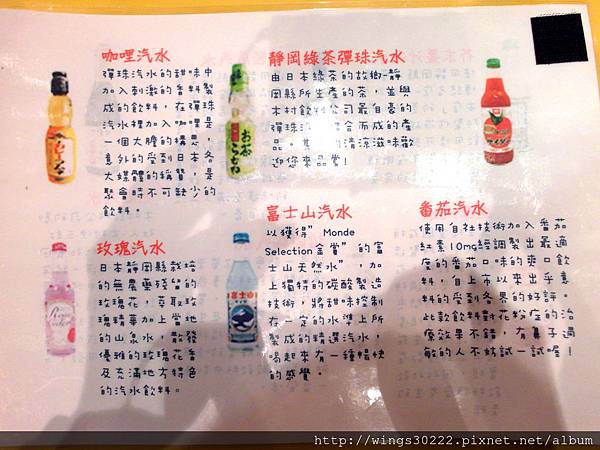 咖哩汽水
彈珠汽水的甜味中
加入刺激的香料製
成的飲料，在彈珠
汽水裡加入咖哩是
一個大膽的構想，
意外的受到日本各
大媒體的稱讚，是
聚會時不可缺少的
飲料。
靜岡綠茶彈珠汽水
由日本綠茶的故鄉-靜
岡縣所生產的茶，並與
木村飲料公司最自豪的
彈珠汽水混合而成的產
品。其中的清涼滋味歡
迎您來品嘗！
玫瑰汽水
日本靜岡縣栽培
的無農藥殘留的
玫瑰花，萃取玫
瑰精華加上當地
的山泉水，散發
優雅的玫瑰花香
及充滿地方特色
的汽水飲料。
富士山汽水
以獲得”Monde
Selection金賞”的富
士山天然水”，加
上獨特的碳酸製造
技術，將甜味控制
在一定的水準上所
製成的精選汽水，
喝起來有一種暢快
的感覺。
番茄汽水
使用自社技術加入番茄
紅素10mg經調製出最適
度的番茄口味的爽口飲
料，自上市以來出乎意
料的受到各界的好評。
此款飲料對花粉症的治
療效果不錯，有鼻子過
敏的人不妨試一試喔！
http://wings30222.pixnet.net/album